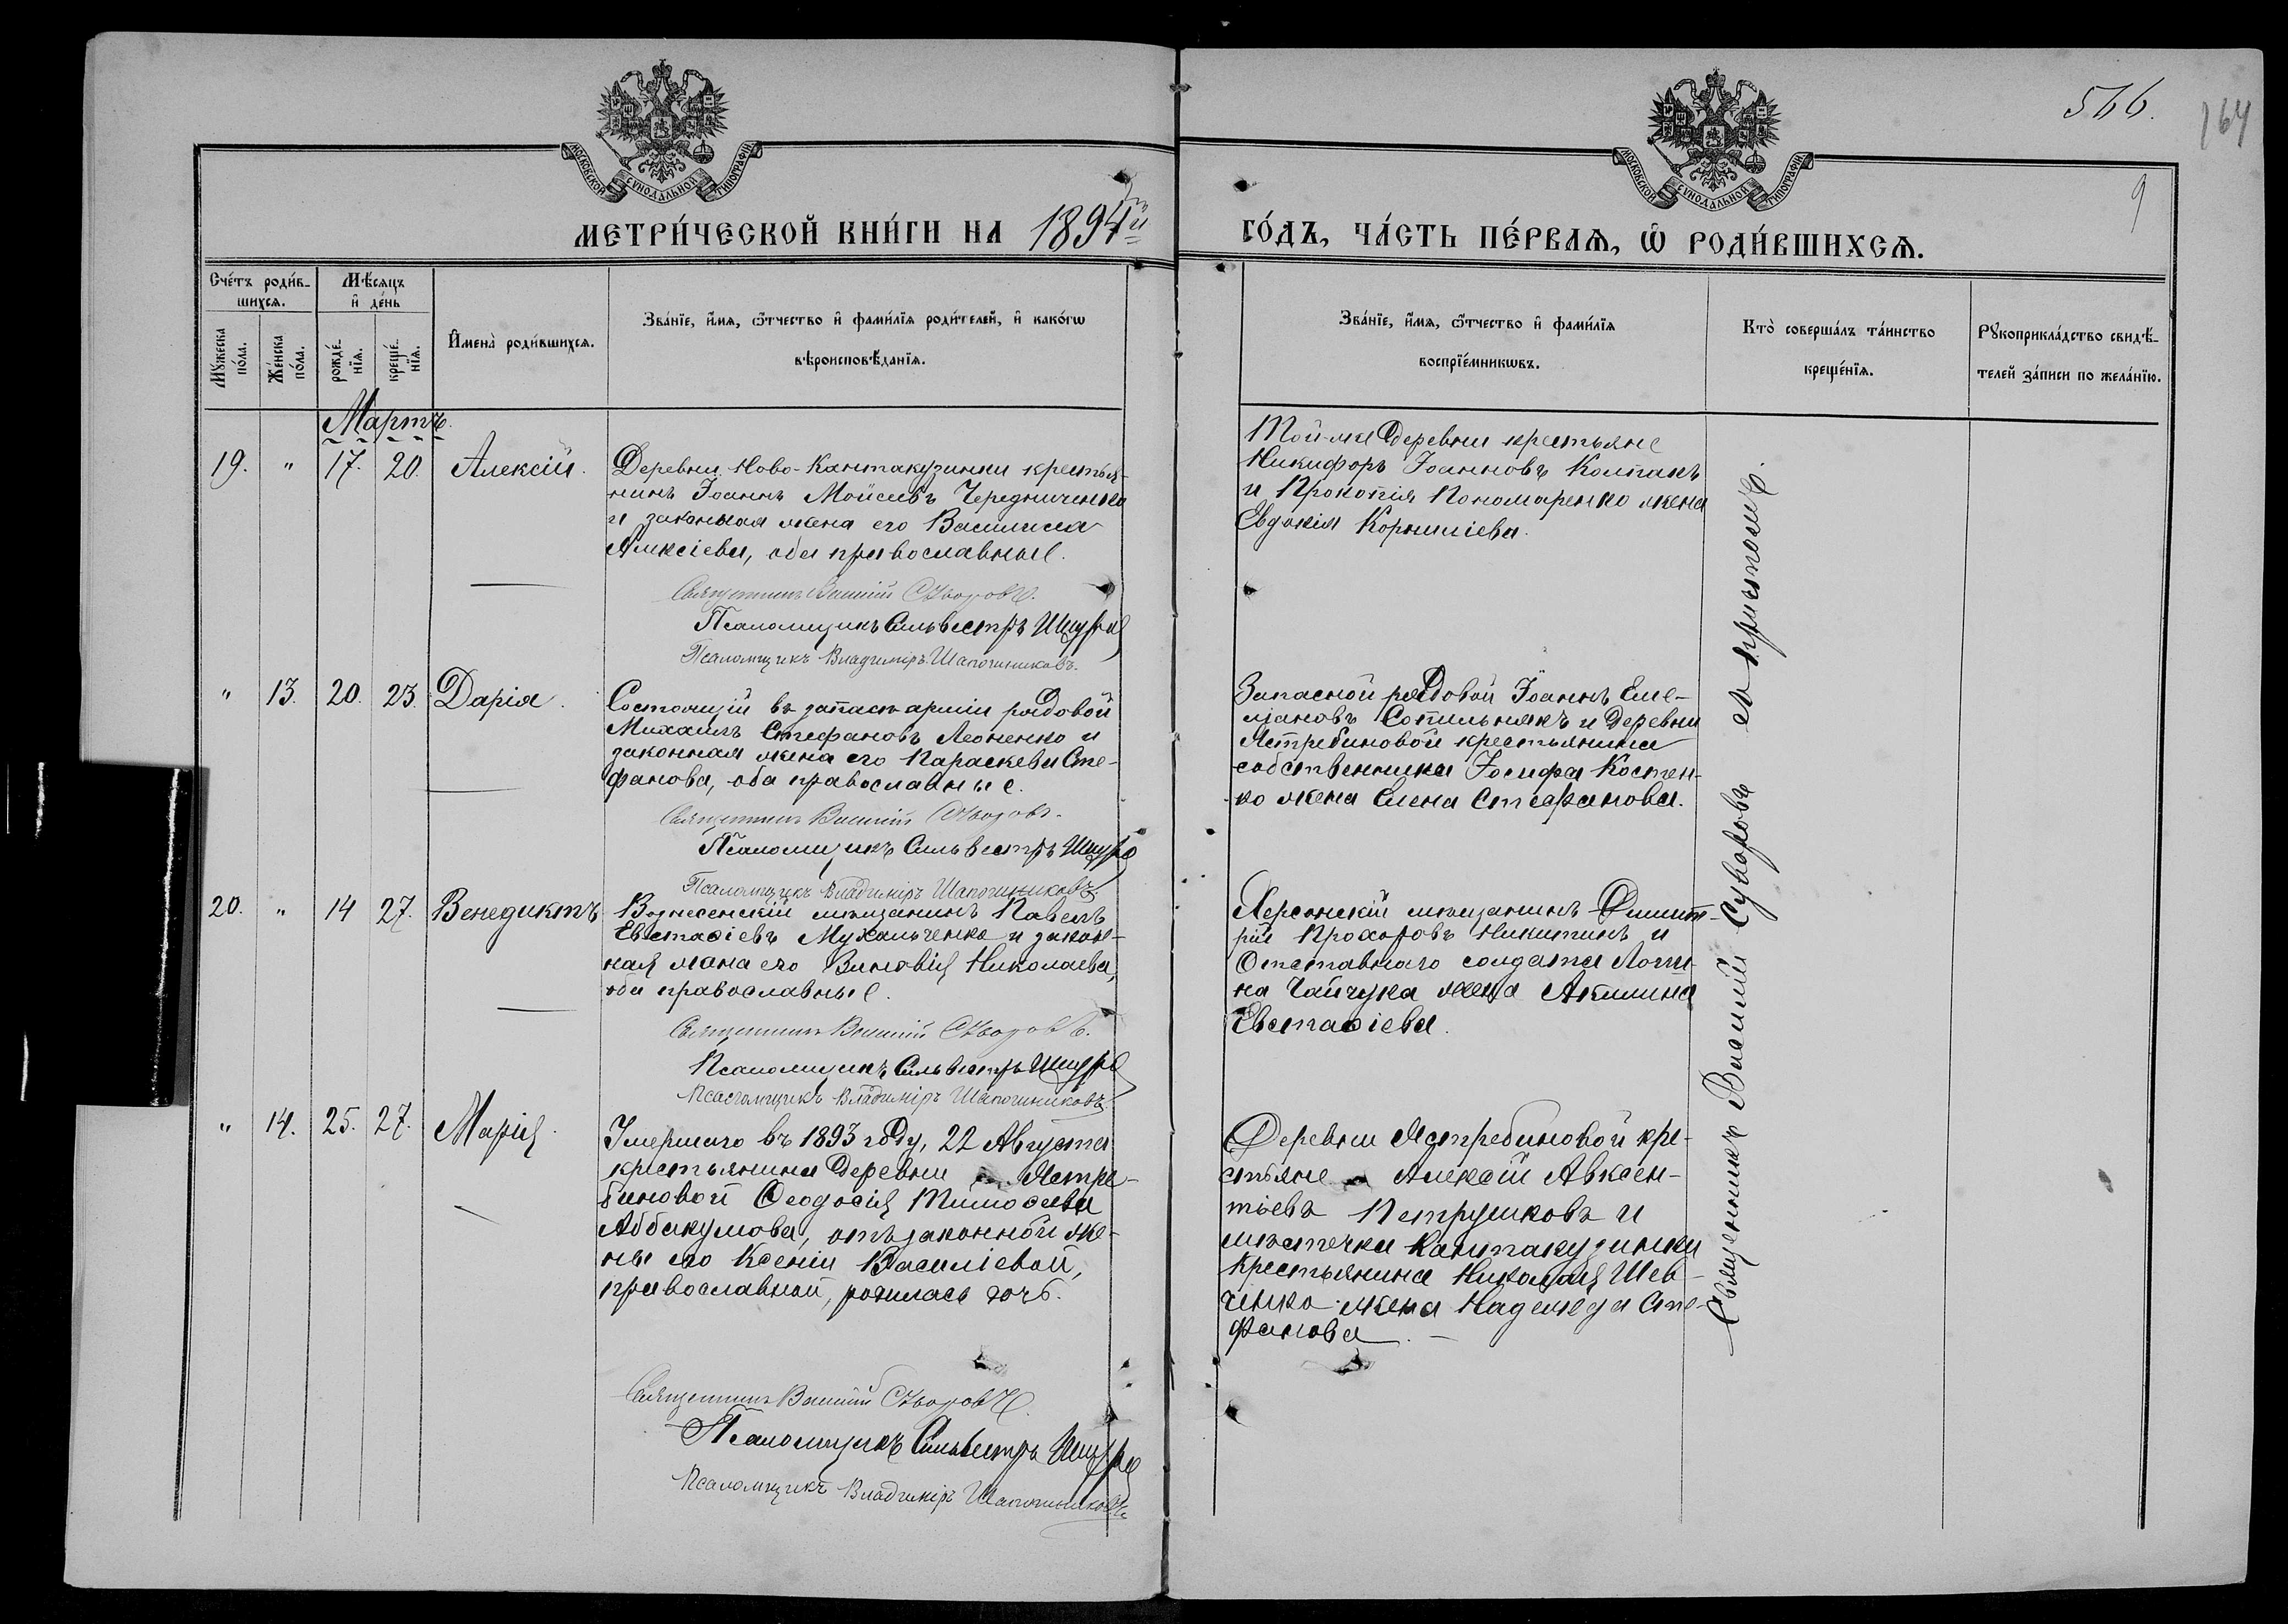 566.
164
9
МОСКОВСКОЙ СѴНОДАЛЬНОЙ ТИПОГРАФІИ
МОСКОВСКОЙ СѴНОДАЛЬНОЙ ТИПОГРАФІИ
МЕТРИ́ЧЕСКОЙ КНИ́ГИ НА 1894й
ГО́ДЪ, ЧА́СТЬ ПЕ́РВАѦ, Ѡ҆ РОДИ́ВШИХСѦ.
Сче́тъ роди́в-
шихсѧ.
Мѣ́сѧцъ
и҆ де́нь
Мꙋ́жеска
по́ла.
Же́нска
по́ла.
рожде́-
нїѧ.
креще́-
нїѧ.
И҆мена̀ роди́вшихсѧ.
Зва́нїе, и҆́мѧ, ѻ҆́тчество и҆ фами́лїѧ роди́телей, и҆ како́гѡ
вѣроисповѣ́данїѧ.
Зва́нїе, и҆́мѧ, ѻ҆́тчество и҆ фами́лїѧ
воспрїе́мникѡвъ.
Кто̀ соверша́лъ та́инство
креще́нїѧ.
Рꙋкоприкла́дство свидѣ́-
телей за́писи по жела́нїю.
Мартъ.
19. " 17. 20. Алексій.
Деревни Ново-Кантакузинки крестья-
нинъ Іоаннъ Моисеевъ Чередниченко
и законная жена его Василиса
Алексіева, оба православные.
Священникъ Василій Суворовъ.
Псаломщикъ Сильвестръ Щура
Псаломщикъ Владиміръ Шапочниковъ.
Той-же деревни крестьяне
Никифоръ Іоанновъ Колпакъ
и Прокопія Пономаренко жена
Евдокія Корниліева.
" 13. 20. 23. Дарія.
Состоящій въ запасѣ арміи рядовой
Михаилъ Стефановъ Леоненко и
законная жена его Параскева Сте-
фанова, оба православные.
Священникъ Василій Суворовъ.
Псаломщикъ Сильвестръ Щура
Псаломщикъ Владиміръ Шапочниковъ.
Запасной рядовой Іоаннъ Еме-
ліановъ Сопильнякъ и деревни
Ястребиновой крестьянина
собственника Іосифа Костен-
ко жена Елена Стефанова.
20. " 14 27. Венедиктъ
Вознесенскій мѣщанинъ Павелъ
Евстафіевъ Михальченко и закон-
ная жена его Зиновія Николаева,
оба православные.
Священникъ Василій Суворовъ.
Псаломщикъ Сильвестръ Щура
Псаломщикъ Владиміръ Шапочниковъ.
Херсонскій мѣщанинъ Димит-
рій Прохоровъ Никитинъ и
Отставнаго солдата Логи-
на Чайчука жена Акилина
Евстафіева.
" 14. 25. 27. Марія.
Умершаго въ 1893 году, 22 Августа
крестьянина деревни Ястре-
биновой Феодосія Тимофеева
Аввакумова, отъ законной же-
ны его Ксеніи Василіевой,
православной, родилась дочь.
Священникъ Василій Суворовъ.
Псаломщикъ Сильвестръ Щура
Псаломщикъ Владиміръ Шапочниковъ.
Деревни Ястребиновой кре-
стьяне Алексій Авксен-
тіевъ Петрушковъ и
мѣстечка Кантакузинки
крестьянина Николая Шев-
ченко жена Надежда Сте-
фанова.
Священникъ Василій Суворовъ съ причтомъ.